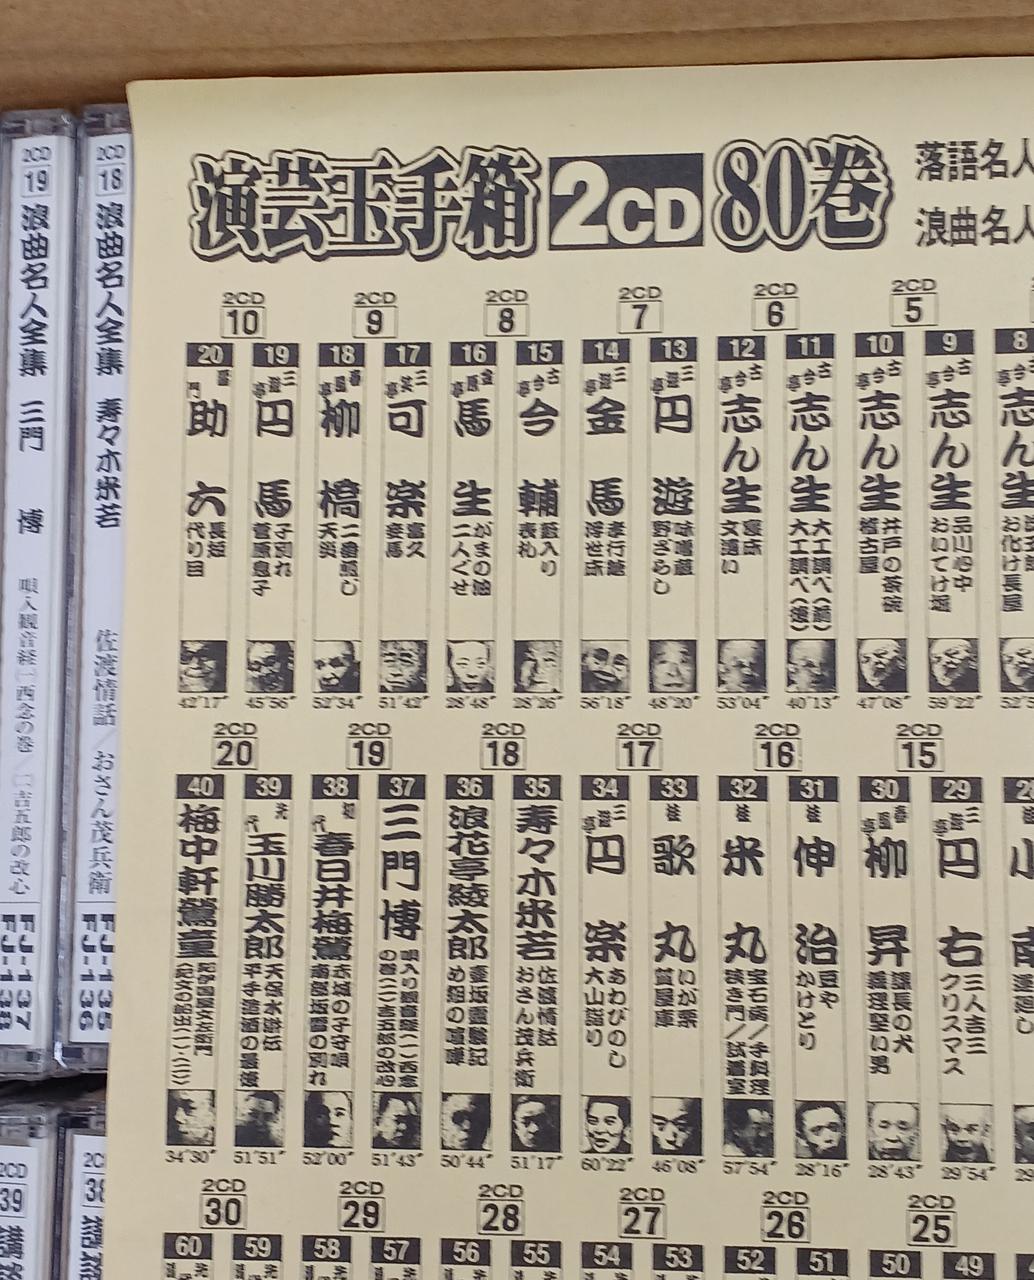 演芸玉手箱 2CD 80巻
落語名人
浪曲名人
2CD 5
2CD 6
2CD 7
2CD 8
2CD 9
2CD 10
8
お化け長屋
9 古今亭 志ん生 品川心中 おいてけ堀 59'22"
10 古今亭 志ん生 井戸の茶碗 稽古屋 47'08"
11 古今亭 志ん生 大工調べ(前) 大工調べ(後) 40'13"
12 古今亭 志ん生 寝床 文違い 53'04"
13 三遊亭 円遊 味噌蔵 野ざらし 48'20"
14 三遊亭 金馬 孝行糖 浮世床 56'18"
15 古今亭 今輔 藪入り 表札 28'26"
16 金原亭 馬生 がまの油 二人ぐせ 28'48"
17 三笑亭 可楽 富久 妾馬 51'42"
18 春風亭 柳橋 二番煎じ 天災 52'34"
19 三遊亭 円馬 子別れ 菅原息子 45'56"
20 雷門 助六 長短 代り目 42'17"
2CD 15
2CD 16
2CD 17
2CD 18
2CD 19
2CD 20
29 三遊亭 円右 三人吉三 クリスマス 29'54"
30 春風亭 柳昇 課長の犬 義理堅い男 28'43"
31 桂 伸治 豆や かけとり 28'16"
32 桂 米丸 宝石病/手料理 狭き門/試着室 57'54"
33 桂 歌丸 いが栗 質屋庫 46'08"
34 三遊亭 円楽 あわびのし 大山詣り 60'22"
35 寿々木米若 佐渡情話 おさん茂兵衛 51'17"
36 浪花亭綾太郎 壺坂霊験記 め組の喧嘩 50'44"
37 三門博 唄入り観音経(一)西念の巻(二)吉五郎の改心 51'43"
38 初代 春日井梅鶯 赤城の子守唄 南部坂雪の別れ 52'00"
39 先代 玉川勝太郎 天保水滸伝 平手造酒の最後 51'51"
40 梅中軒鶯童 紀伊国屋文左衛門 紀文の船出(一・二) 34'30"
2CD 25
2CD 26
2CD 27
2CD 28
2CD 29
2CD 30
49
50
51
52
53
54
55
56
57
58
59
60
2CD 18 浪曲名人全集 寿々木米若 佐渡情話/おさん茂兵衛 FJ-135 FJ-136
2CD 19 浪曲名人全集 三門 博 唄入観音経(一)西念の巻/(二)吉五郎の改心 FJ-137 FJ-138
2CD 39 講談